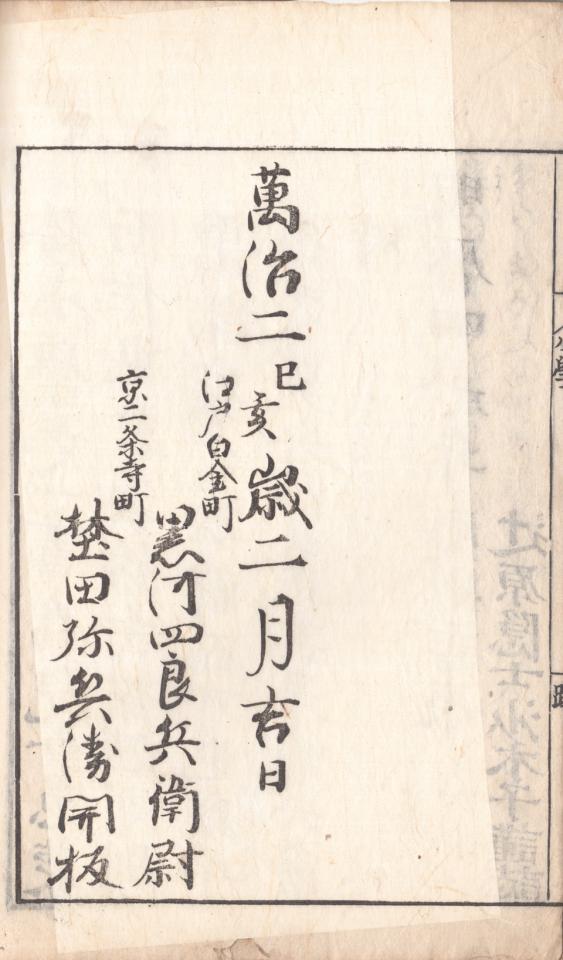 萬治二己亥歳二月吉日
江戸白金町
黒河四良兵衛尉
京二条寺町
埜田弥兵衛開板